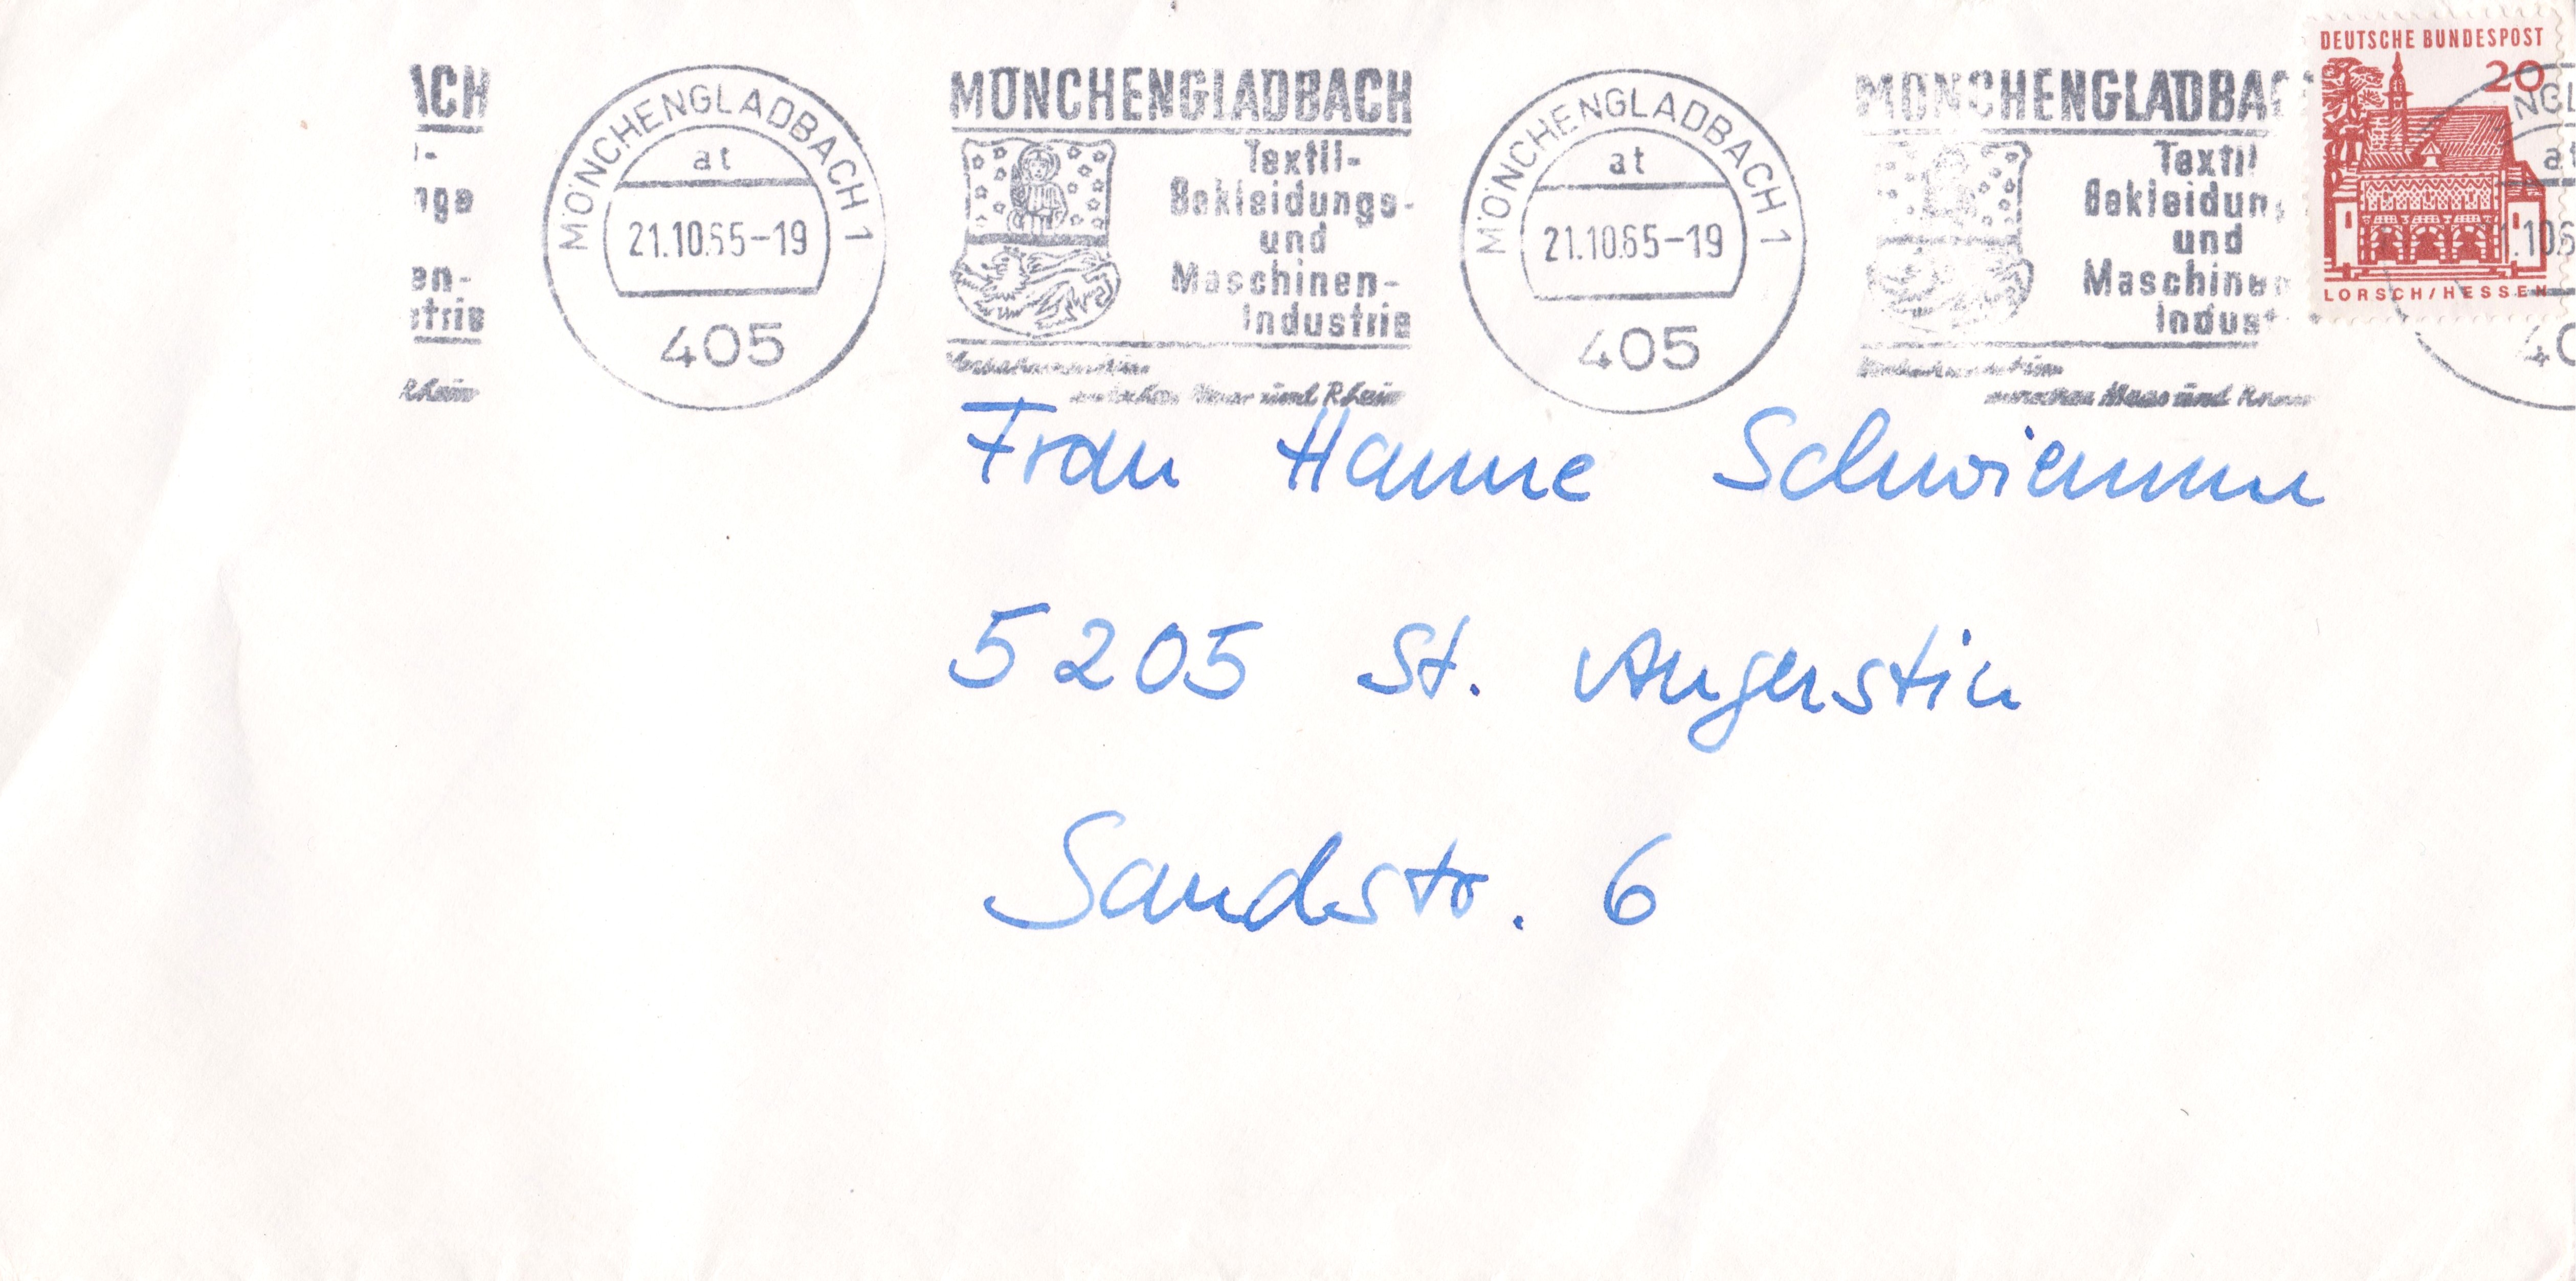 ACH
nge
en-
strie
Rhein
MÖNCHENGLADBACH 1
at
21.10.65-19
405
MÖNCHENGLADBACH
Textil-
Bekleidungs-
und
Maschinen-
Industrie
und Rhein
MÖNCHENGLADBACH 1
at
21.10.65-19
405
MÖNCHENGLADBAC
Textil
Bekleidung
und
Maschinen
Indust
Maas und
DEUTSCHE BUNDESPOST
20
LORSCH/HESSEN
NGL
at
.10.6
40
Frau Hanne
5205 St. Augustin
Sandstr. 6